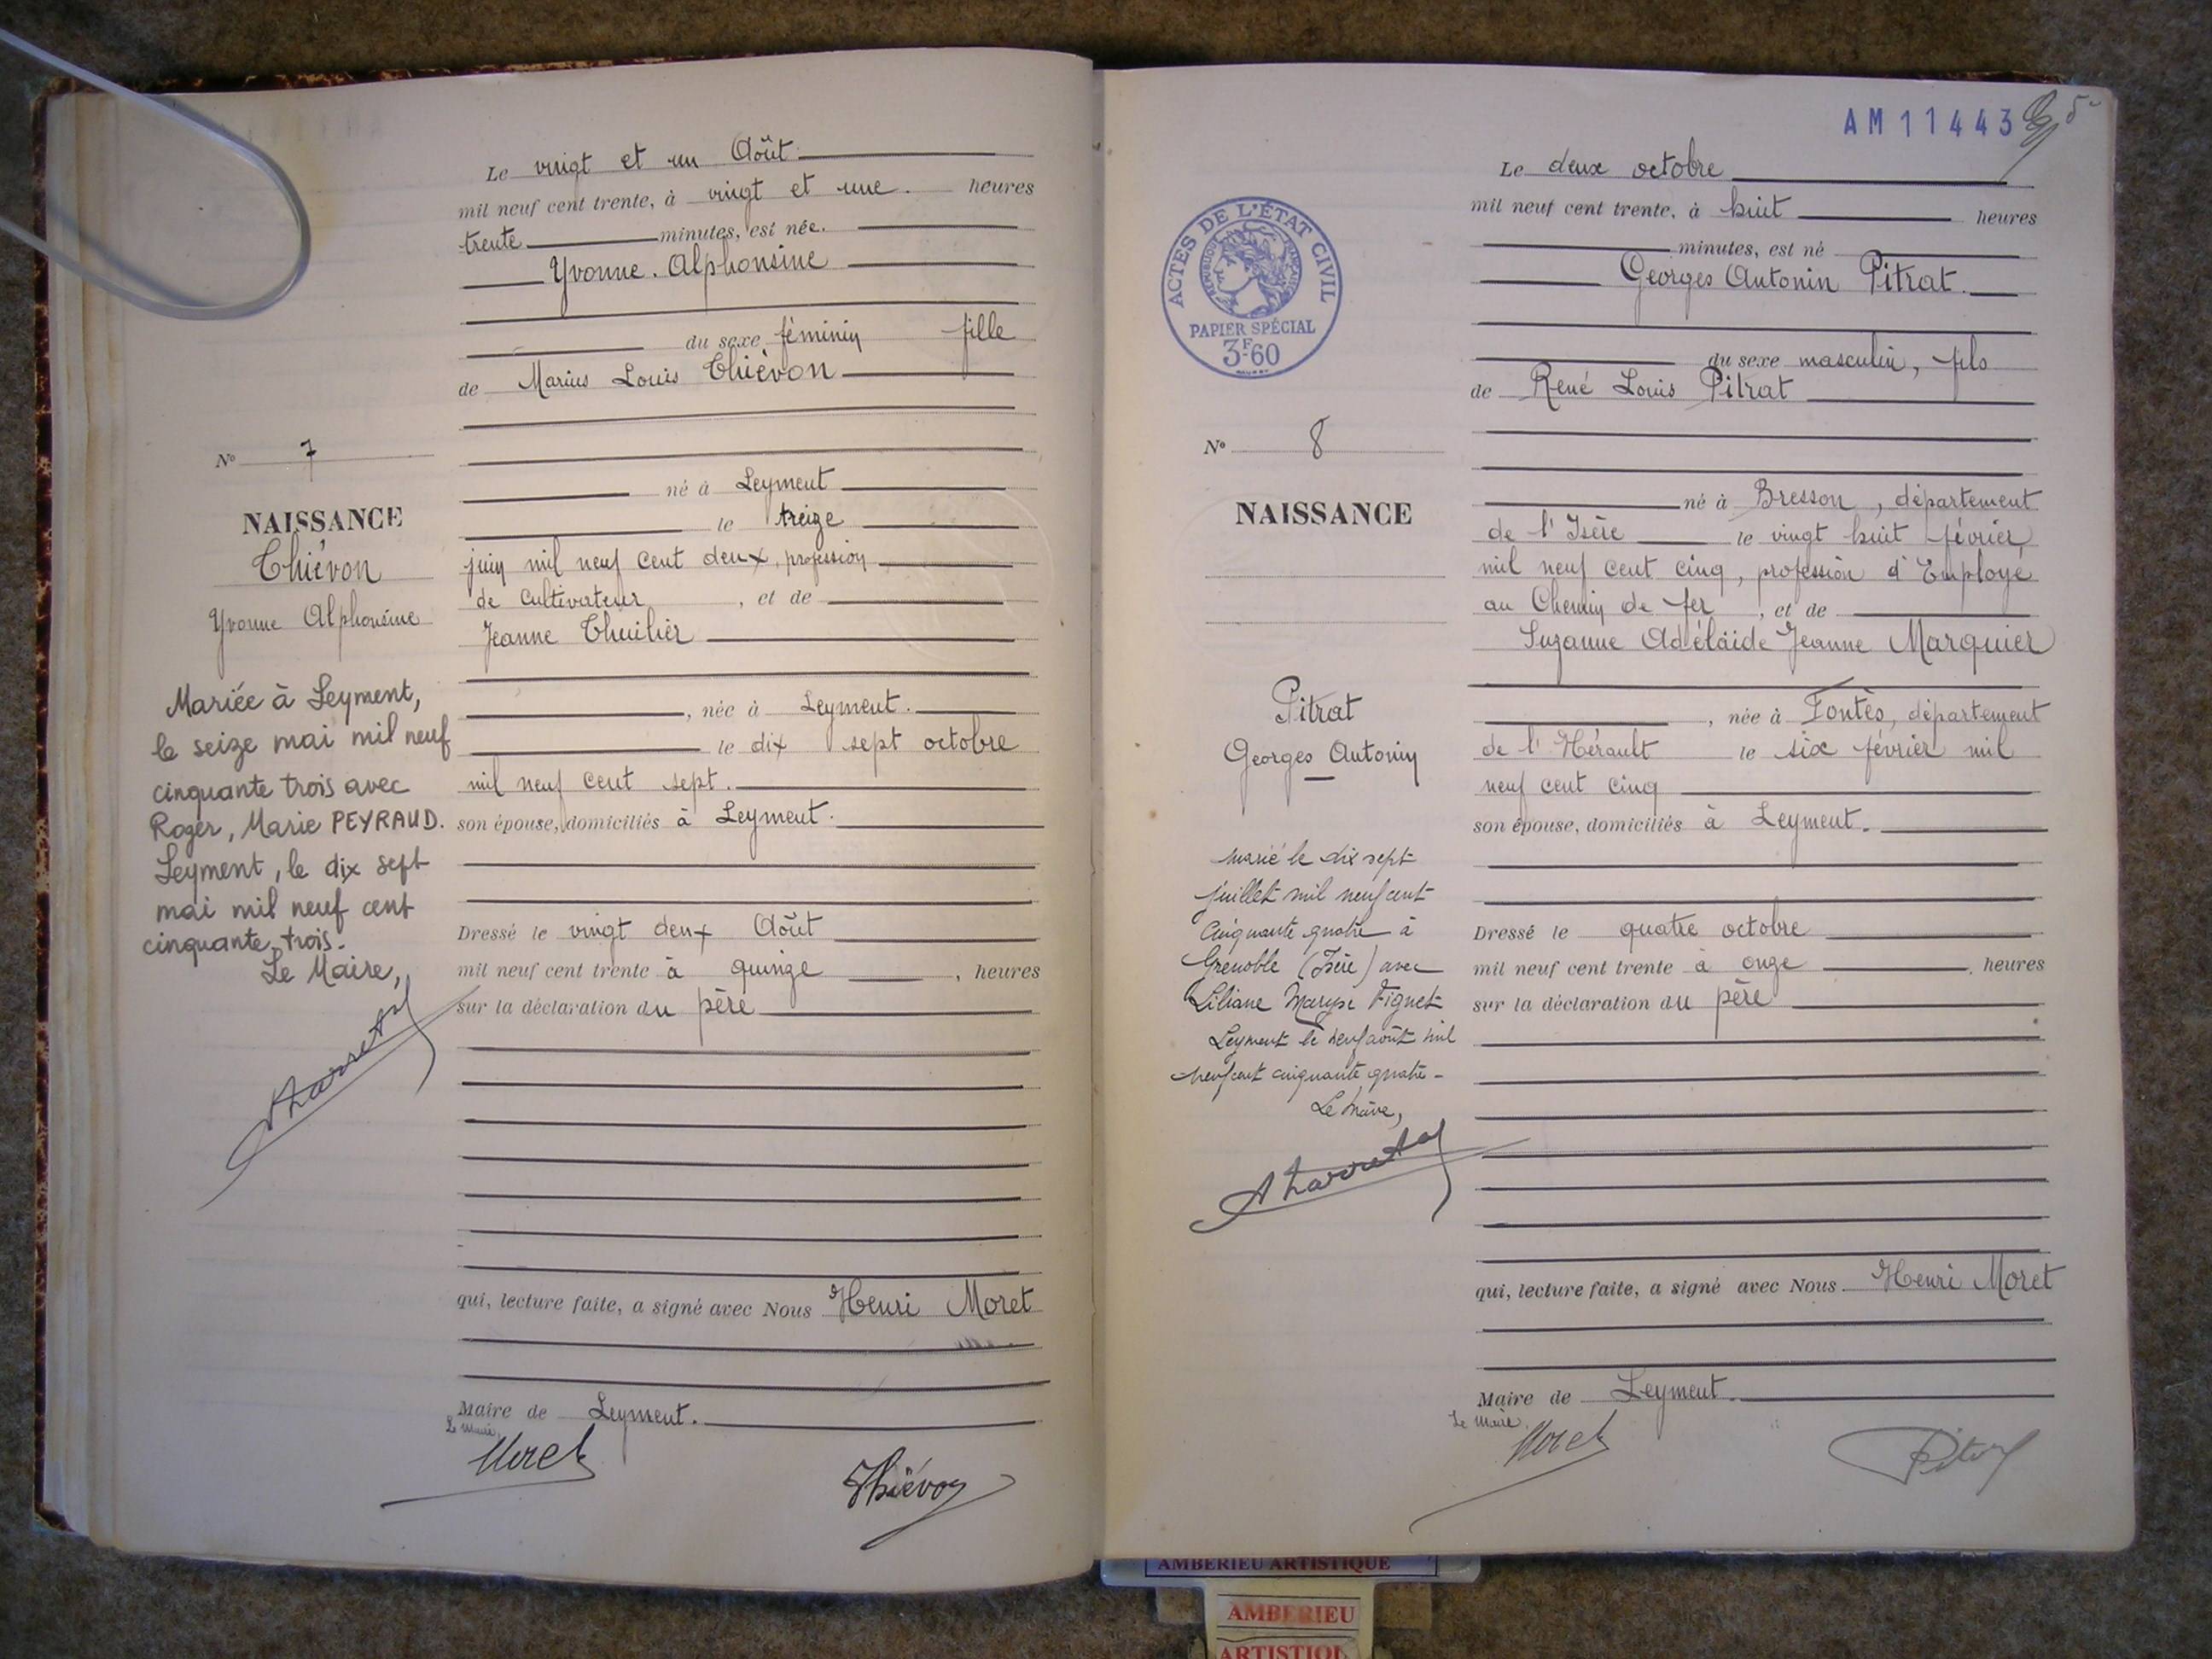 Le vingt et un Août
mil neuf cent trente, à vingt et une. heures
trente minutes, est née.
Yvonne. Alphonsine
du sexe féminin fille
de Marius Louis Thiévon
né à Leyment
le treize
juin mil neuf cent deux, profession
de Cultivateur, et de
Jeanne Thuilier
, née à Leyment.
le dix sept octobre
mil neuf cent sept.
son épouse, domiciliés à Leyment.
Dressé le vingt deux Août
mil neuf cent trente à quinze, heures
sur la déclaration du père
qui, lecture faite, a signé avec Nous Henri Moret
Maire de Leyment.
Le Maire,
Moret
Thiévon
No 7
NAISSANCE
Thiévon
Yvonne Alphonsine
Mariée à Leyment,
le seize mai mil neuf
cinquante trois avec
Roger, Marie PEYRAUD.
Leyment, le dix sept
mai mil neuf cent
cinquante trois.
Le Maire,
AM11443
5
ACTES DE L'ÉTAT CIVIL
RÉPUBLIQUE FRANÇAISE
PAPIER SPÉCIAL
3F60
No 8
NAISSANCE
Pitrat
Georges Antonin
marié le dix sept
juillet mil neuf cent
cinquante quatre à
Grenoble (Isère) avec
Liliane Maryse Vignet
Leyment le neuf août mil
neuf cent cinquante quatre -
Le Maire,
Le deux octobre
mil neuf cent trente, à huit heures
minutes, est né
Georges Antonin Pitrat.
du sexe masculin, fils
de René Louis Pitrat
né à Bresson, département
de l'Isère le vingt huit février,
mil neuf cent cinq, profession d'Employé
au Chemin de fer, et de
Suzanne Adélaïde Jeanne Marquier
, née à Fontès, département
de l'Hérault le six février mil
neuf cent cinq
son épouse, domiciliés à Leyment.
Dressé le quatre octobre
mil neuf cent trente à onze, heures
sur la déclaration du père
qui, lecture faite, a signé avec Nous Henri Moret
Maire de Leyment.
Le Maire,
Moret
Pitrat
AMBERIEU ARTISTIQUE
AMBERIEU